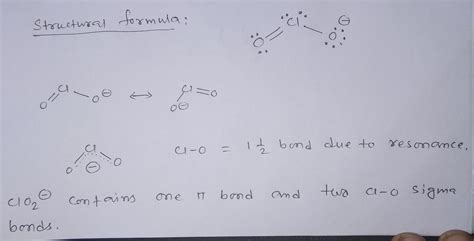 Structural formula:
O Cl O ⊖
O Cl O ⊖ ↔ Cl = O
O⊖
Cl
O ⊖ O
Cl-O = 1 1/2 bond due to resonance.
ClO2⊖ contains one π bond and two Cl-O sigma
bonds.